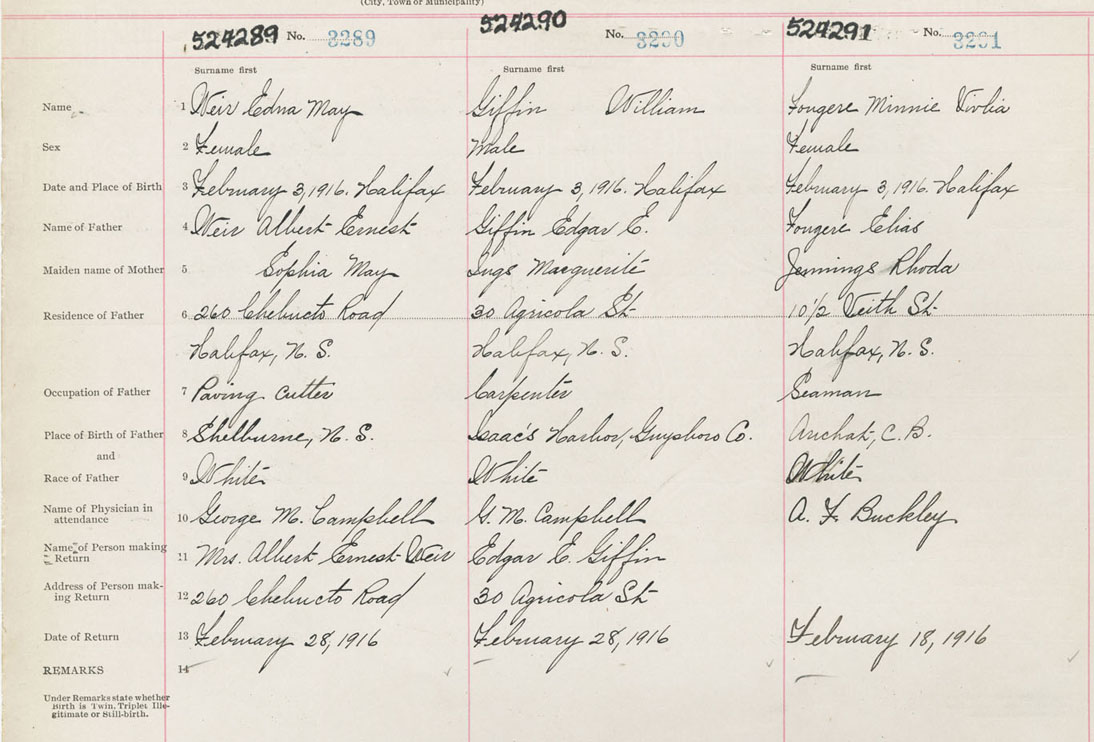 (City, Town or Municipality)
524289 No. 3289 524290 No. 3290 524291 No. 3291
Surname first Surname first Surname first
Name 1 Weir Edna May Giffin William Fougere Minnie
Sex 2 Female Male Female
Date and Place of Birth 3 February 3, 1916. Halifax February 3, 1916. Halifax February 3, 1916. Halifax
Name of Father 4 Weir Albert Ernest Giffin Edgar E. Fougere Elias
Maiden name of Mother 5 Sophia May Ings Macguerite Jennings Rhoda
Residence of Father 6 260 Chebucto Road 30 Agricola St. 10½ Veith St.
Halifax, N. S. Halifax, N. S. Halifax, N. S.
Occupation of Father 7 Paving cutter Carpenter Seaman
Place of Birth of Father 8 Shelburne, N. S. Isaac's Harbor, Guysboro Co. Arichat, C. B.
and
Race of Father 9 White White White
Name of Physician in
attendance 10 George M. Campbell G. M. Campbell A. F. Buckley
Name of Person making
Return 11 Mrs. Albert Ernest Weir Edgar E. Giffin
Address of Person mak-
ing Return 12 260 Chebucto Road 30 Agricola St.
Date of Return 13 February 28, 1916 February 28, 1916 February 18, 1916
REMARKS 14
Under Remarks state whether
Birth is Twin, Triplet Ille-
gitimate or Still-birth.